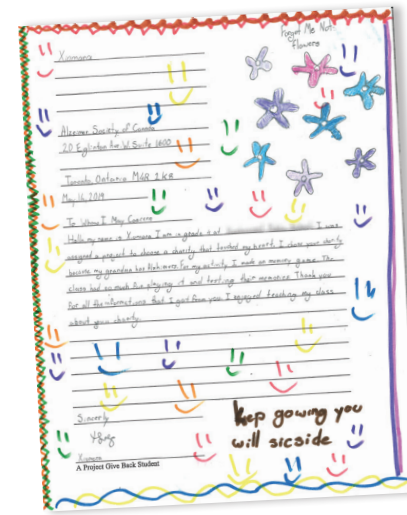 Forget Me Not
flowers
Xiomara
Alzeimer Society of Canada
20 Eglinton Ave. W. Suite 1600
Toronto Ontario M4R 1K8
May 16, 2019
To Whom I May Concern
Hello my name is Xiomara I am in grade 4 at I was
assigned a project to choose a charity that touched my heart. I chose your charity
because my grandma has Alzhimers. For my activity I made an memory game. The
class had so much fun playing it and testing their memories. Thank you
for all the informations that I got from you I enjoyed teaching my class
about your charity.
Sincerly
Xiomara
A Project Give Back Student
kep gowing you
will sicside